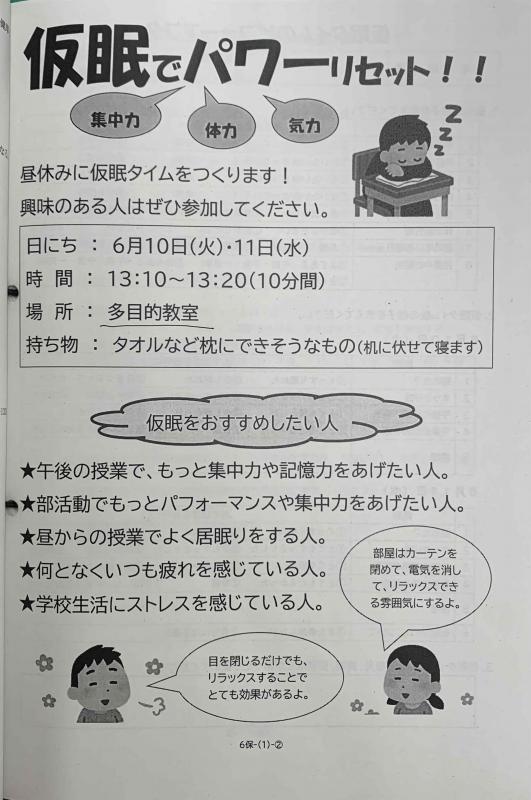 仮眠でパワーリセット！！
集中力
体力
気力
ZZZ
昼休みに仮眠タイムをつくります！
興味のある人はぜひ参加してください。
日にち ： 6月10日(火)・11日(水)
時 間 ： 13:10～13:20(10分間)
場 所 ： 多目的教室
持ち物 ： タオルなど枕にできそうなもの(机に伏せて寝ます)
仮眠をおすすめしたい人
★午後の授業で、もっと集中力や記憶力をあげたい人。
★部活動でもっとパフォーマンスや集中力をあげたい人。
★昼からの授業でよく居眠りをする人。
★何となくいつも疲れを感じている人。
★学校生活にストレスを感じている人。
部屋はカーテンを
閉めて、電気を消し
て、リラックスでき
る雰囲気にするよ。
目を閉じるだけでも、
リラックスすることで
とても効果があるよ。
6保-(1)-②